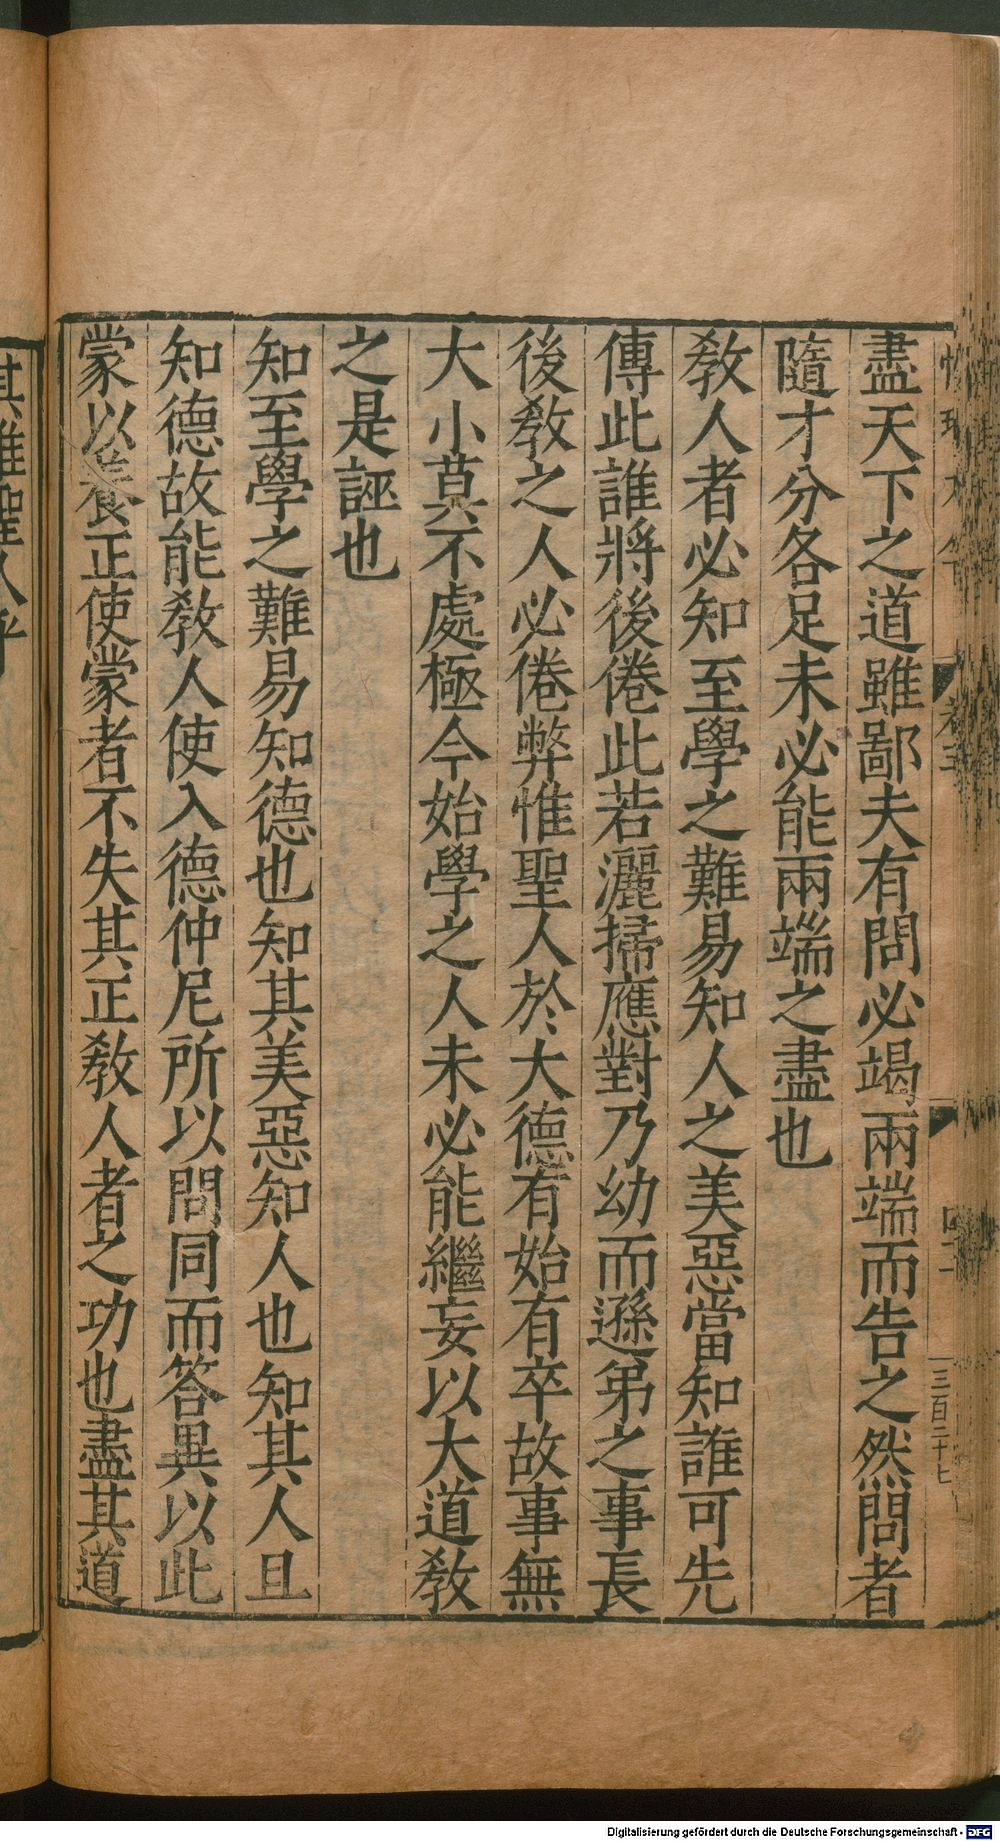 盡天下之道雖鄙夫有問必竭兩端而告之然問者
隨才分各足未必能兩端之盡也
敎人者必知至學之難易知人之美惡當知誰可先
傳此誰將後倦此若灑掃應對乃幼而遜弟之事長
後敎之人必倦弊惟聖人於大德有始有卒故事無
大小莫不處極今始學之人未必能繼妄以大道敎
之是誣也
知至學之難易知德也知其美惡知人也知其人且
知德故能敎人使入德仲尼所以問同而答異以此
蒙以養正使蒙者不失其正敎人者之功也盡其道
其惟聖人乎
卷三
三百二十七
Digitalisierung gefördert durch die Deutsche Forschungsgemeinschaft - DFG